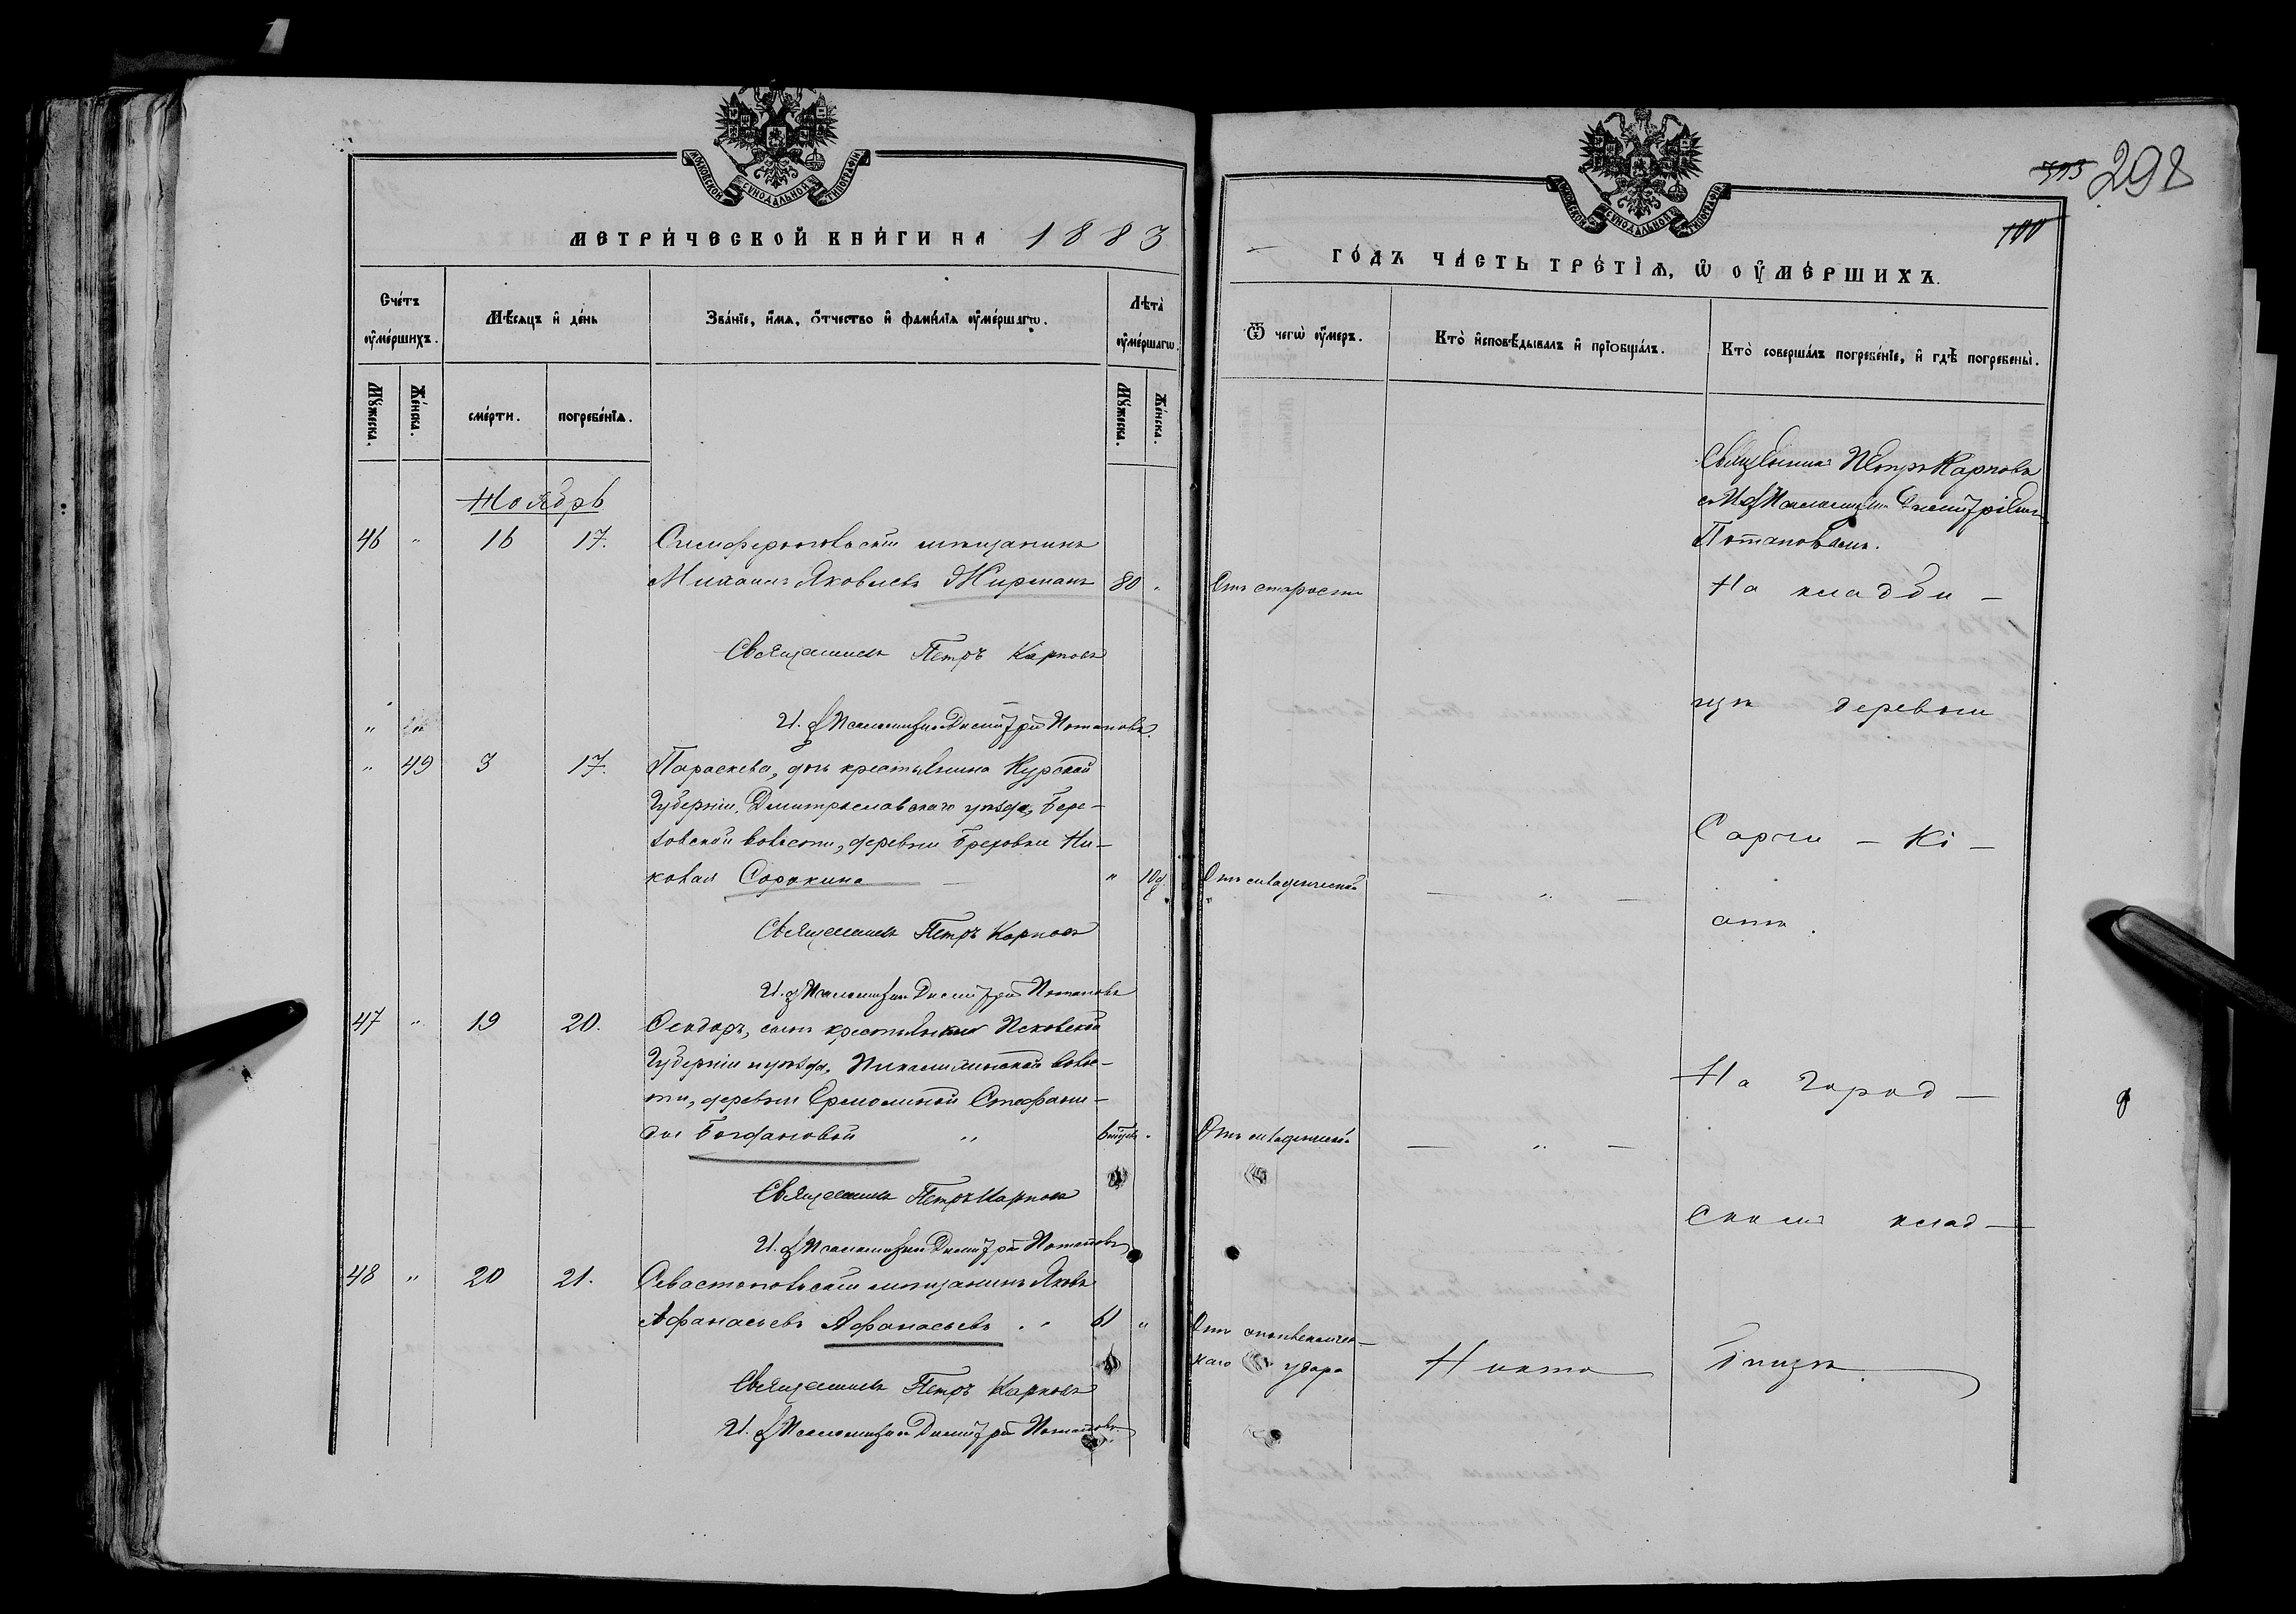 МОСКОВСКОЙ СѴНОДАЛЬНОЙ ТИПОГРАФІИ
МЕТРИ́ЧЕСКОЙ КНИ́ГИ НА 1883
Сче́тъ ᲂу҆ме́ршихъ.
Мѣ́сяцъ и҆ де́нь
Зва́нїе, и҆́мѧ, ѻ҆́тчество и҆ фами́лїѧ ᲂу҆ме́ршагѡ.
Лѣта̀ ᲂу҆ме́ршагѡ.
Мꙋ́жеска.
Же́нска.
сме́рти.
погребе́нїѧ.
Мꙋ́жеска.
Же́нска.
Ноябрь
46 " 16 17. Симферопольскій мѣщанинъ
Михаилъ Яковлевъ Жирманъ 80 "
Священникъ Петръ Карповъ
И. д. Псаломщика Димитрій Потаповъ.
" 49 3 17. Параскева, дочь крестьянина Курской
Губерніи, Дмитріевскаго уѣзда, Бере-
зовской волости, деревни Ни-
колая Сорокина " 10 д.
Священникъ Петръ Карповъ
И. д. Псаломщика Димитрій Потаповъ
47 " 19 20. Ѳеодоръ, сынъ крестьянки Псковской
Губерніи и уѣзда, волос-
ти, деревни Стефани-
ды Богдановой "
Священникъ Петръ Карповъ
И. д. Псаломщика Димитрій Потаповъ
48 " 20 21. Севастопольскій мѣщанинъ Яковъ
Аѳанасьевъ Аѳанасьевъ " 61 "
Священникъ Петръ Карповъ
И. д. Псаломщика Димитрій Потаповъ
МОСКОВСКОЙ СѴНОДАЛЬНОЙ ТИПОГРАФІИ
298
100
ГО́ДЪ ЧА́СТЬ ТРЕ́ТЇѦ, Ѡ҆ ᲂУ҆МЕ́РШИХЪ.
Ѿ чегѡ̀ ᲂу҆́меръ.
Кто̀ и҆сповѣ́дывалъ и҆ прїѡбща́лъ.
Кто̀ соверша́лъ погребе́нїе, и҆ гдѣ̀ погребены̀.
Священникъ Петръ Карповъ
съ И. д. Псаломщика Димитріемъ
Потаповымъ.
Отъ старости
На кладби-
щѣ деревни
Сарчи - Кі-
Отъ младенческой — " —
атъ.
На город-
Отъ младенческой — " —
скомъ клад-
Отъ апоплексичес-
каго удара Никто бищѣ.